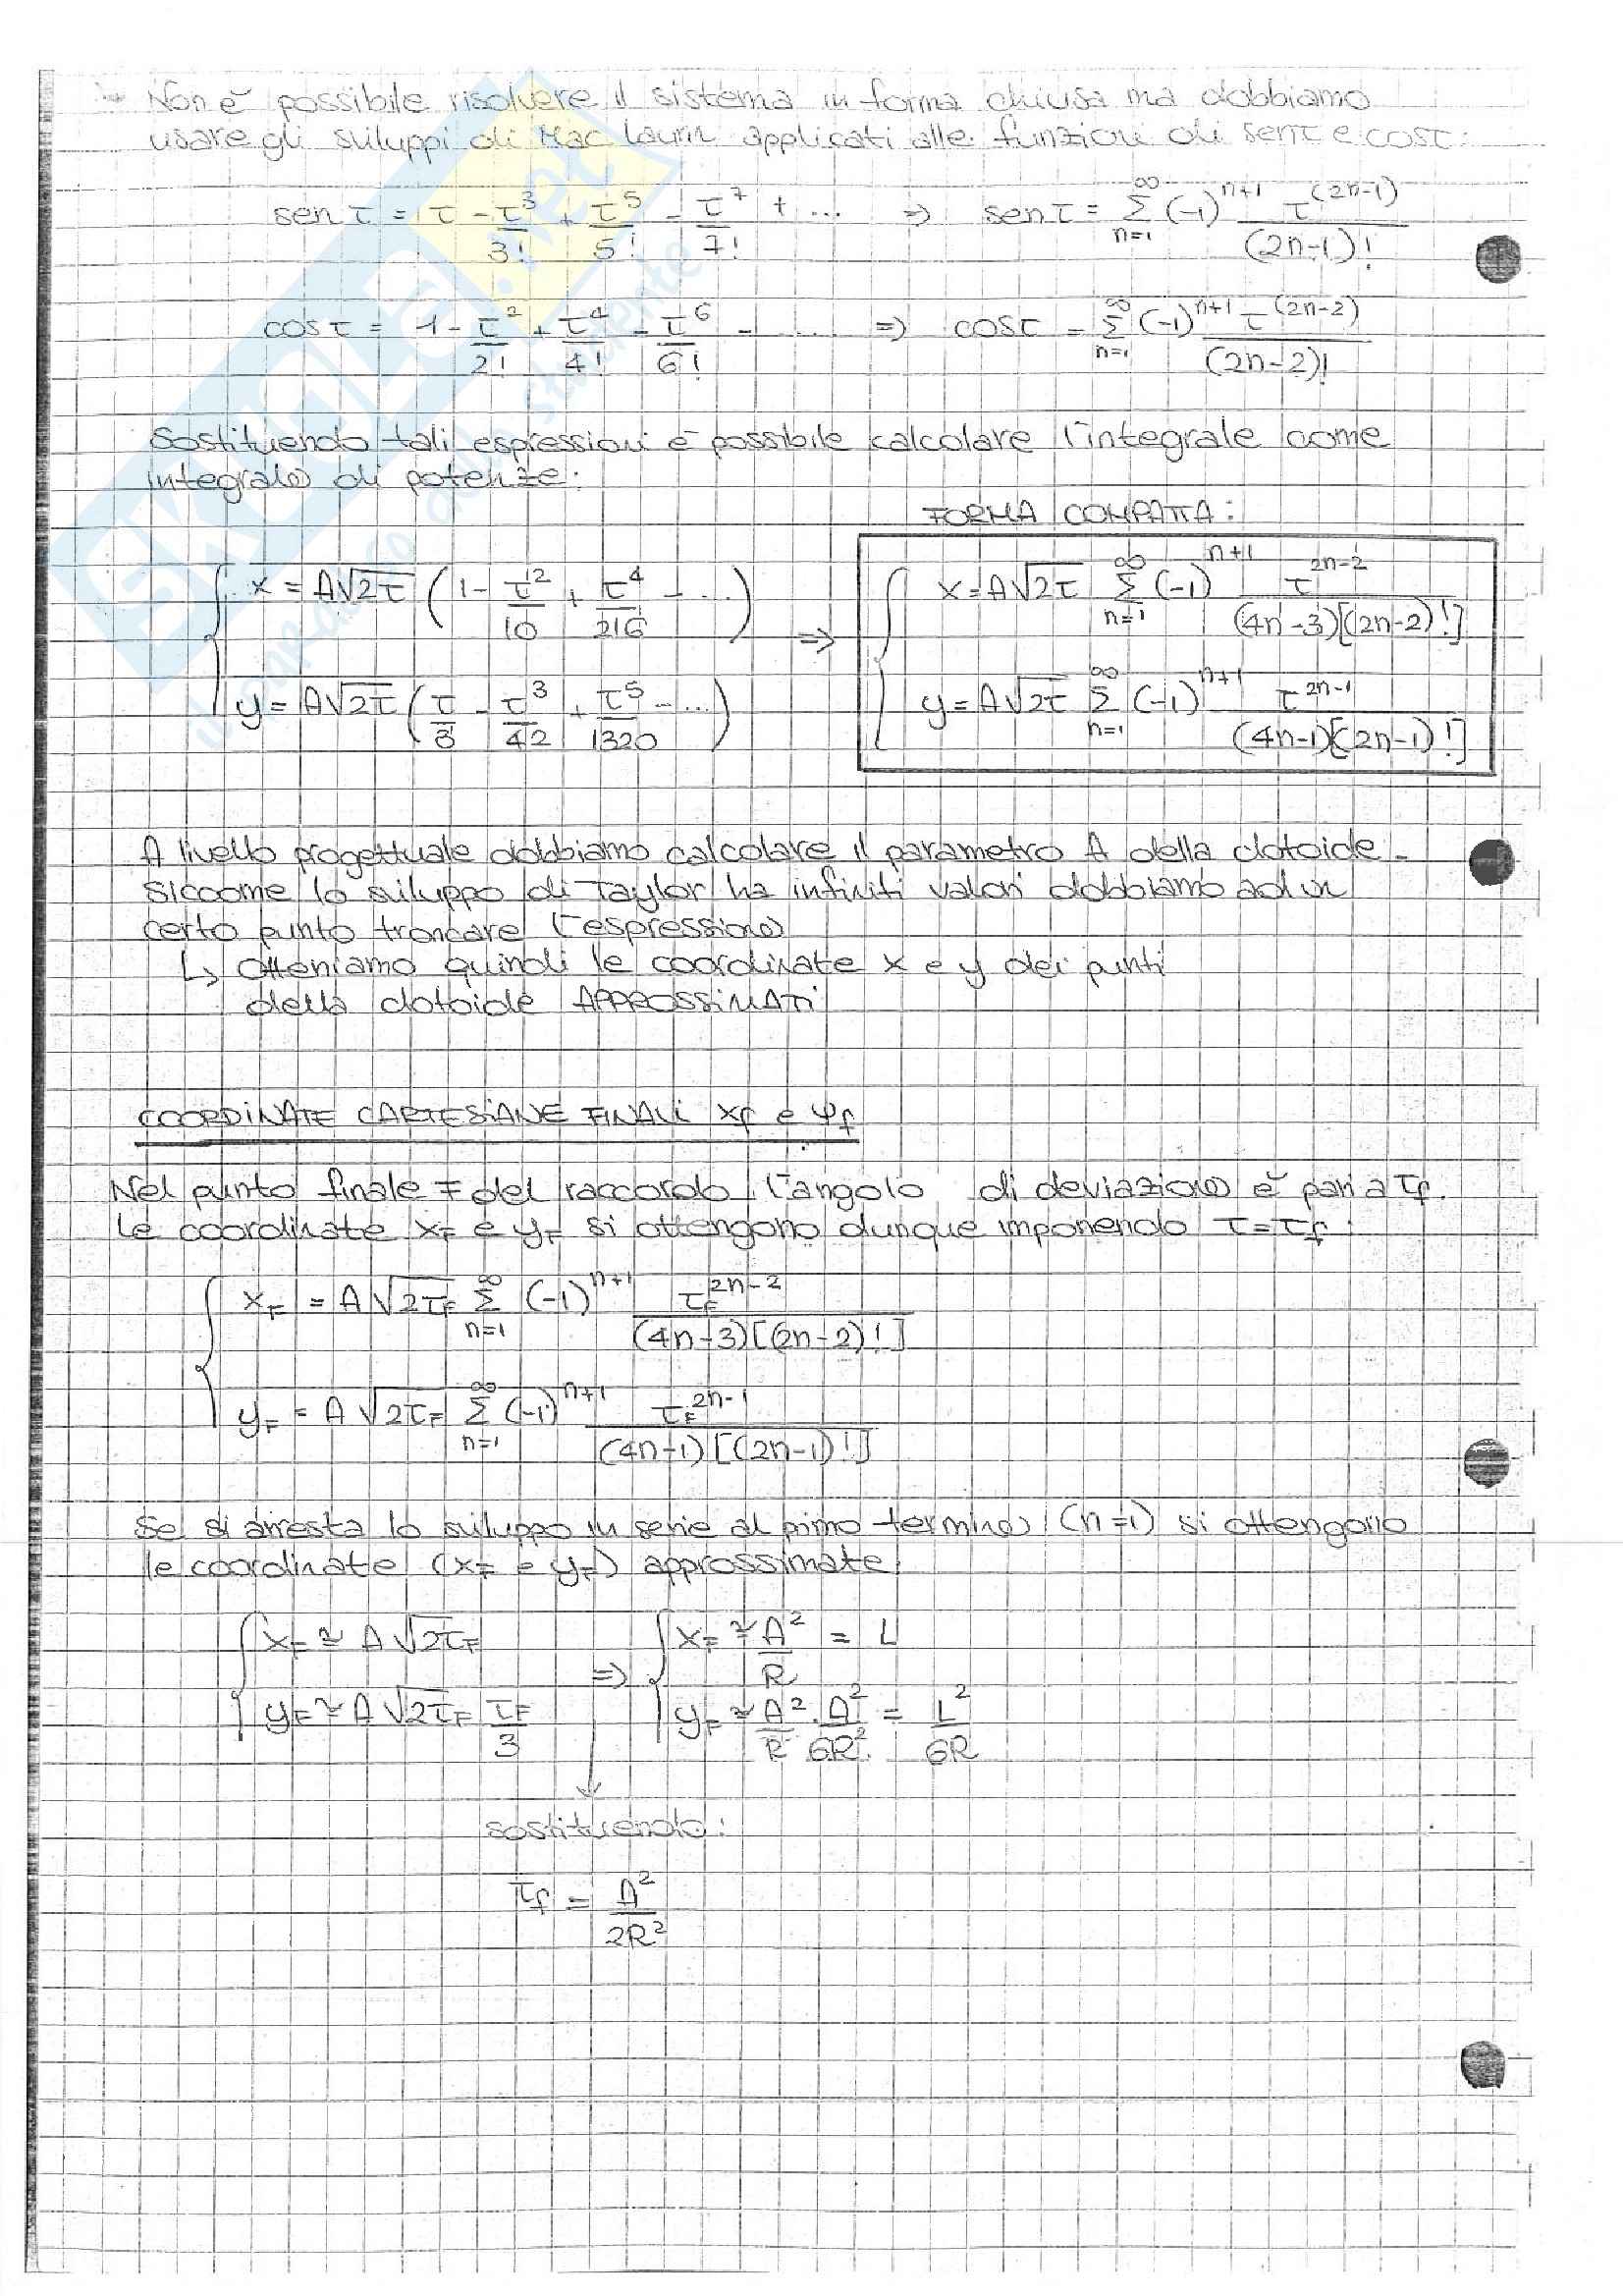 Non è possibile risolvere il sistema in forma chiusa ma dobbiamo
usare gli sviluppi di Mac Laurin applicati alle funzioni di senτ e cosτ:
sen τ = τ - τ³/3! + τ⁵/5! - τ⁷/7! + ... ⇒ senτ = Σ_{n=1}^{∞} (-1)^{n+1} τ^{(2n-1)}/(2n-1)!
cos τ = 1 - τ²/2! + τ⁴/4! - τ⁶/6! - .... ⇒ cosτ = Σ_{n=1}^{∞} (-1)^{n+1} τ^{(2n-2)}/(2n-2)!
Sostituendo tali espressioni è possibile calcolare l'integrale come
integrale di potenze:
FORMA COMPATTA:
x = A√2τ (1 - τ²/10 + τ⁴/216 - ...) ⇒ x = A√2τ Σ_{n=1}^{∞} (-1)^{n+1} τ^{2n-2}/(4n-3)[(2n-2)!]
y = A√2τ (τ/3 - τ³/42 + τ⁵/1320 - ...) y = A√2τ Σ_{n=1}^{∞} (-1)^{n+1} τ^{2n-1}/(4n-1)[(2n-1)!]
A livello progettuale dobbiamo calcolare il parametro A della clotoide.
Siccome lo sviluppo di Taylor ha infiniti valori dobbiamo ad un
certo punto troncare l'espressione
↳ otteniamo quindi le coordinate x e y dei punti
della clotoide APPROSSIMATI
COORDINATE CARTESIANE FINALI xf e yf
Nel punto finale F del raccordo l'angolo di deviazione è pari a τf.
Le coordinate xF e yF si ottengono dunque imponendo τ=τf:
xF = A√2τF Σ_{n=1}^{∞} (-1)^{n+1} τF^{2n-2}/(4n-3)[(2n-2)!]
yF = A√2τF Σ_{n=1}^{∞} (-1)^{n+1} τF^{2n-1}/(4n-1)[(2n-1)!]
Se si arresta lo sviluppo in serie al primo termine (n=1) si ottengono
le coordinate (xF e yF) approssimate:
xF ≃ A√2τF ⇒ xF ≃ A²/R = L
yF ≃ A√2τF τF/3 yF ≃ A²/R · A²/6R² = L²/6R
sostituendo:
τf = A²/2R²